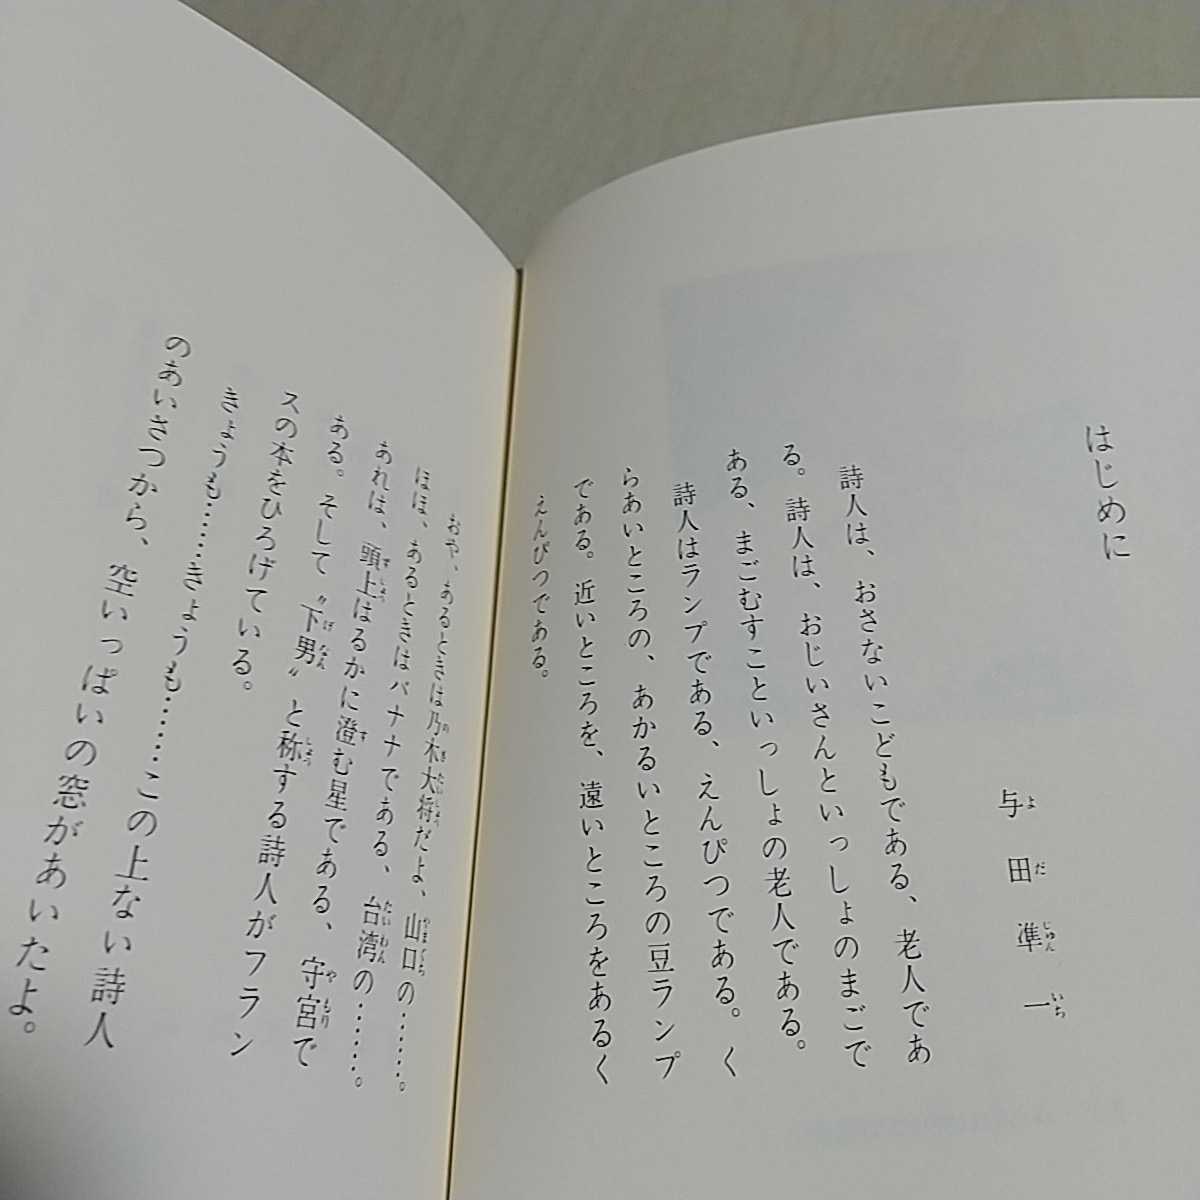 はじめに
与田凖一
詩人は、おさないこどもである、老人であ
る。詩人は、おじいさんといっしょのまごで
ある、まごむすこといっしょの老人である。
詩人はランプである、えんぴつである。く
らあいところの、あかるいところの豆ランプ
である。近いところを、遠いところをあるく
えんぴつである。
おや、あるときは乃木大将だよ、山口の……。
ほほ、あるときはバナナである、台湾の……。
あれは、頭上はるかに澄む星である、守宮で
ある。そして〝下男〟と称する詩人がフラン
スの本をひろげている。
きょうも……きょうも……この上ない詩人
のあいさつから、空いっぱいの窓があいたよ。